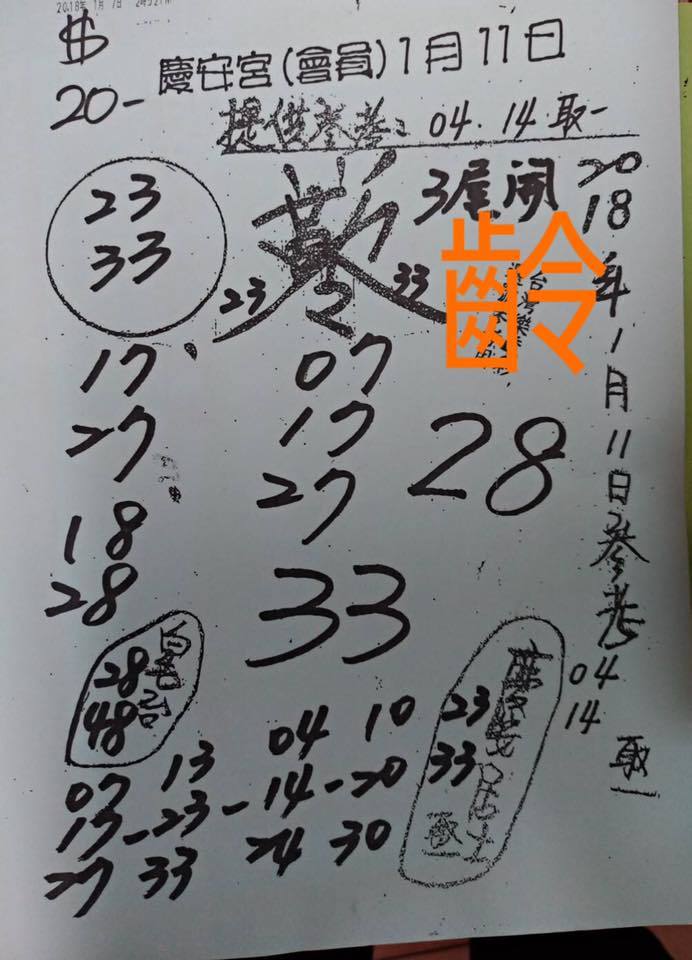 2018年 1月 7日
$
20-
慶安宮(會員)1月11日
提供參考: 04.14 取一
23
33
23
33
3尾開
齡
2018年1月11日參考
04
14
取一
17
27
07
17
27
28
18
28
33
28
48
23
33
取一
07 13 04 10
17-23-14-20
27 33 24 30